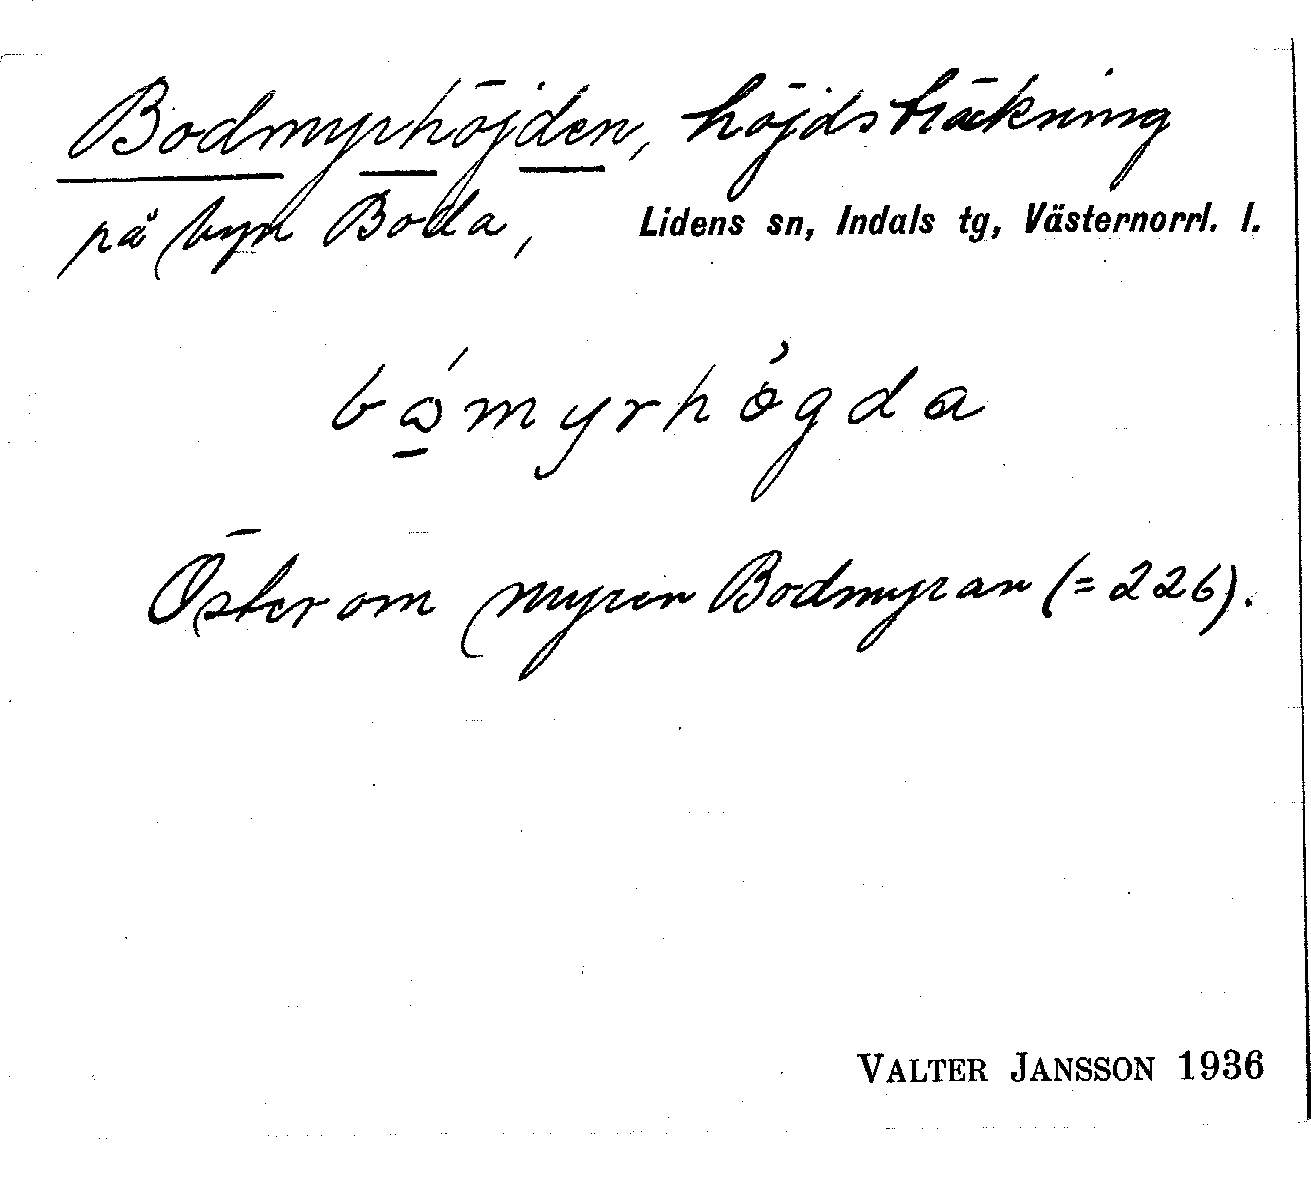 Bodmyrhöjden, höjdsträckning
på byn Boda, Lidens sn, Indals tg, Västernorrl. l.
bǫ́myrhǿgda
Öster om myren Bodmyran (= 226).
VALTER JANSSON 1936